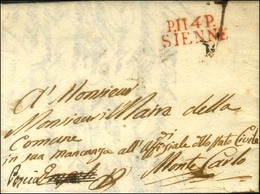 P.114.P.
SIENNE
A Monsieur
Monsieur il Maire della
Comune
in sua mancanza all' Uffiziale dello Stato Civile
Pescia
Monte Carlo